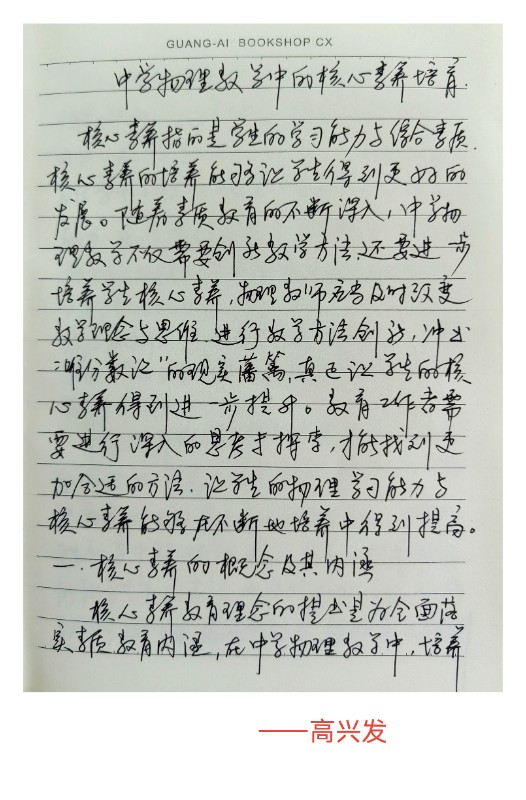 GUANG-AI BOOKSHOP CX
中学物理教学中的核心素养培育.
核心素养指的是学生的学习能力与综合素质.
核心素养的培养能够让学生得到更好的
发展。随着素质教育的不断深入，中学物
理教学不仅需要创新教学方法,还要进一步
培养学生核心素养,物理教师应当及时改变
教学理念与思维.进行教学方法创新,冲出
"唯分数论"的现实藩篱,真正让学生的核
心素养得到进一步提升。教育工作者需
要进行深入的思考于探索,才能找到更
加合适的方法.让学生的物理学习能力与
核心素养能够在不断地培养中得到提高。
一.核心素养的概念及其内涵
核心素养教育理念的提出是为全面落
实素质教育内涵,在中学物理教学中,培养
——高兴发